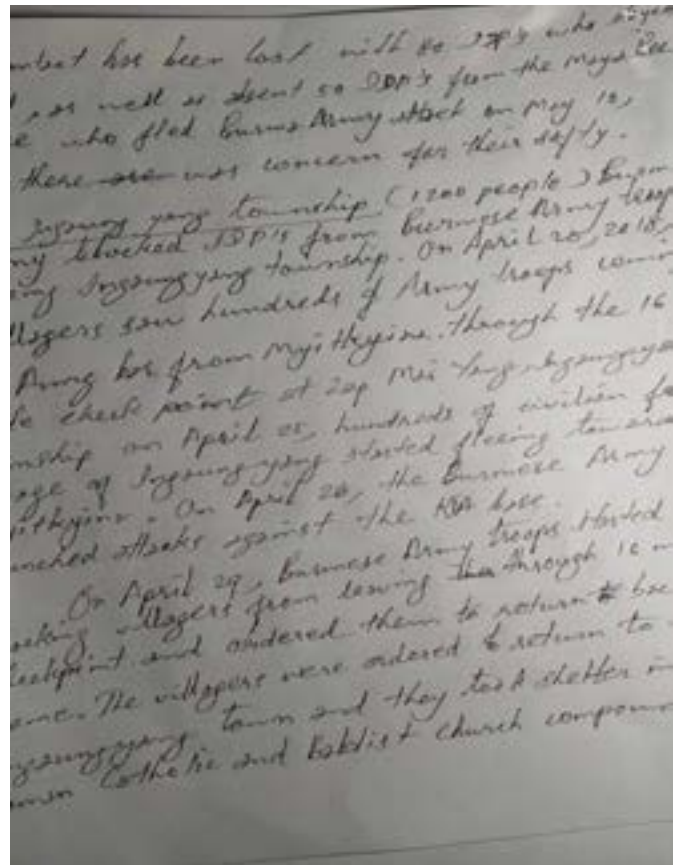 has been lost with 80 IDP's who
, as well as about 50 IDP's from the
e who fled Burma Army attack on May 10,
there was concern for their safty.
Ingaung yang township (1200 people)
blocked IDP's from Burmese Army troop
Ingaungyang township. On April 20, 2018,
llagers saw hundreds of Army troops
Army from Myitkyina through the 16
check point at Zup Mai Yang,
nship on April 25, hundreds of civilian
age of Ingaungyang started fleeing
. On April 26, the Burmese Army
unched attacks against the KIA base.
On April 29, Burmese Army troops started
ocking villagers from leaving through 16
eckpoint and ordered them to return
ome. The villagers were ordered to return to
town and they took shelter in
Catholic and Babdist church